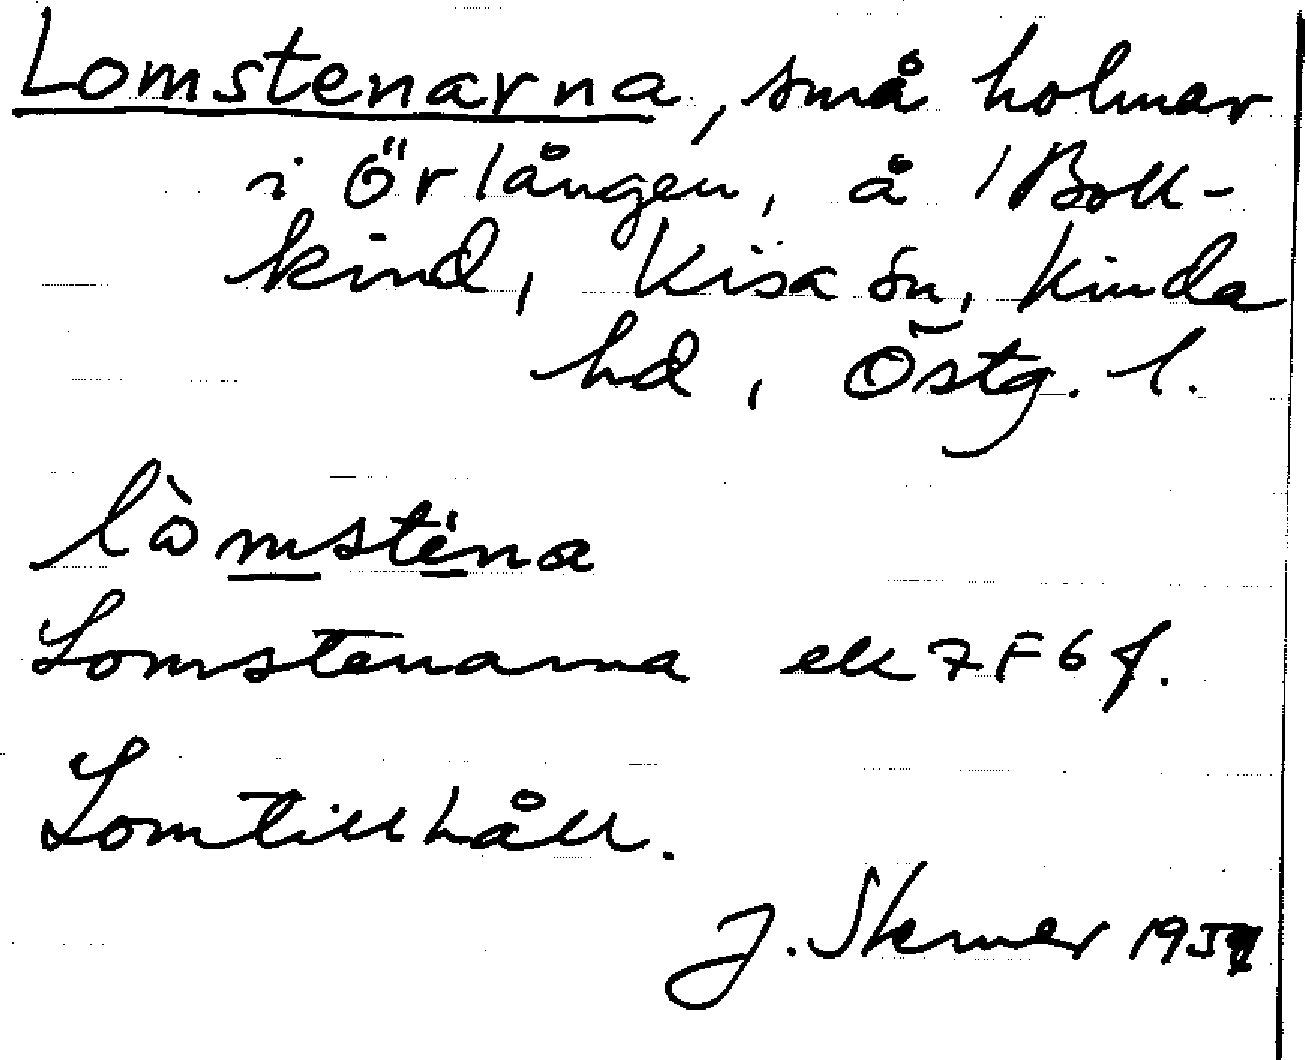 Lomstenarna, små holmar
i Örlången, å /Boll-
kind, Kisa sn, Kinda
hd, Östg. l.
lòmste̍na
Lomstenarna ek 7F6f.
Lomtillhåll.
J. Sterner